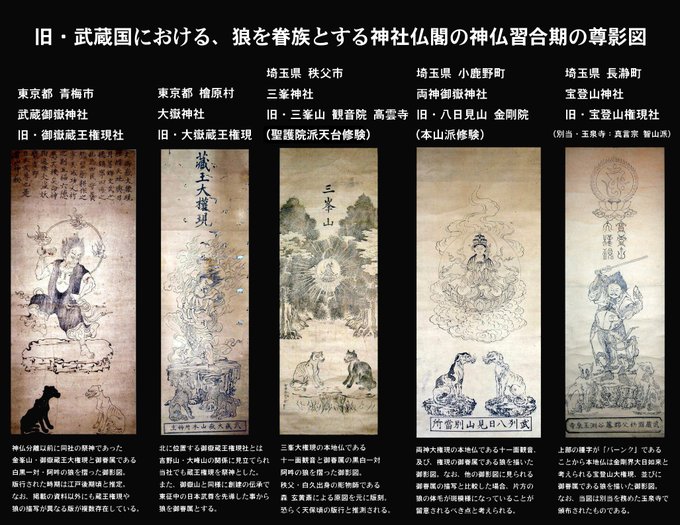 旧・武蔵国における、狼を眷族とする神社仏閣の神仏習合期の尊影図
東京都 青梅市
武蔵御嶽神社
旧・御嶽蔵王権現社
東京都 檜原村
大嶽神社
旧・大嶽蔵王権現
埼玉県 秩父市
三峯神社
旧・三峯山 観音院 高雲寺
(聖護院派天台修験)
埼玉県 小鹿野町
両神御嶽神社
旧・八日見山 金剛院
(本山派修験)
埼玉県 長瀞町
宝登山神社
旧・宝登山権現社
(別当・玉泉寺：真言宗 智山派)
蔵王大権現
武州大嶽山本所神主
三峯山
武列八日見山別當所
寳登山
大権現
神仏分離以前に同社の祭神であった
金峯山・御嶽蔵王大権現と御眷属である
白黒一対・阿吽の狼を摺った御影図。
版行された時期は江戸後期頃と推定。
なお、掲載の資料以外にも蔵王権現や
狼の描写が異なる版が複数存在している。
北に位置する御嶽蔵王権現社とは
吉野山・大峰山の関係に見立てられ
当社でも蔵王権現を祭神とした。
また、御嶽山と同様に創建の伝承で
東征中の日本武尊を先導した事から
狼を御眷属とする。
三峯大権現の本地仏である
十一面観音と御眷属の黒白一対
阿吽の狼を摺った御影図。
秩父・白久出身の彫物師である
森 玄黄斎による原図を元に版刻、
恐らく天保頃の版行と推測される。
両神大権現の本地仏である十一面観音、
及び、権現の御眷属である狼を描いた
御影図。なお、他の御影図に見られる
御眷属の描写と比較した場合、片方の
狼の体毛が斑模様になっていることが
留意されるべき点と考えられる。
上部の種字が「バーンク」である
ことから本地仏は金剛界大日如来と
考えられる宝登山大権現、並びに
御眷属である狼を描いた御影図。
なお、当図は別当を務めた玉泉寺で
頒布されたものである。